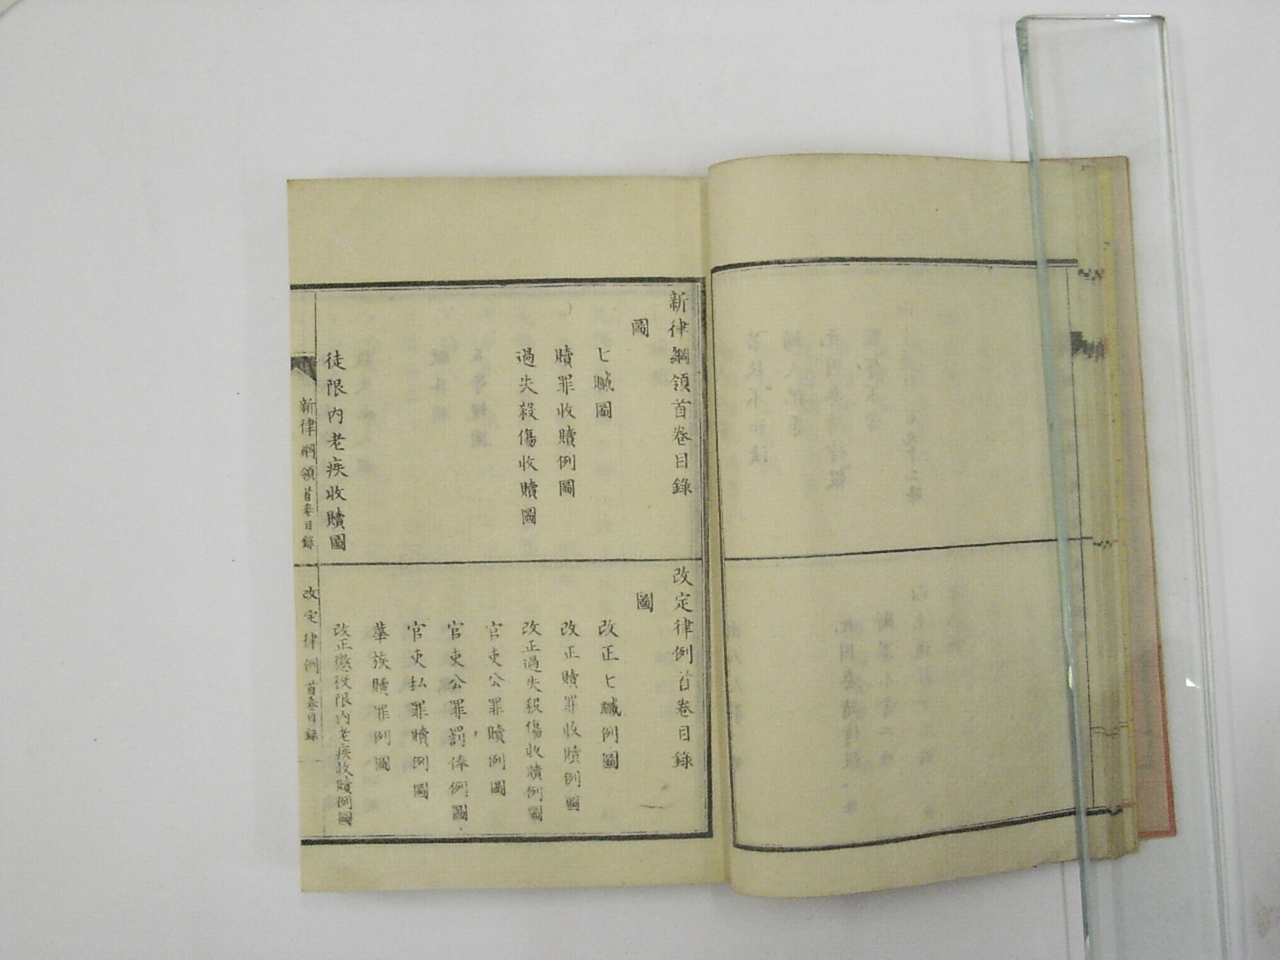 新律綱領首卷目錄
圖
七贓圖
贖罪收贖例圖
過失殺傷收贖圖
徒限内老疾收贖圖
新律綱領首卷目錄
改定律例首卷目錄
圖
改正七贓例圖
改正贖罪收贖例圖
改正過失殺傷收贖例圖
官吏公罪贖例圖
官吏公罪罰俸例圖
官吏私罪贖例圖
華族贖罪例圖
改正懲役限内老疾收贖例圖
改定律例首卷目錄